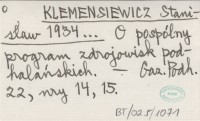 KLEMENSIEWICZ Stani-
sław 1934... O pospólny
program zdrojowisk pod-
halańskich. — Gaz. Podh.
22, nry 14, 15.
BT/02.5/1071